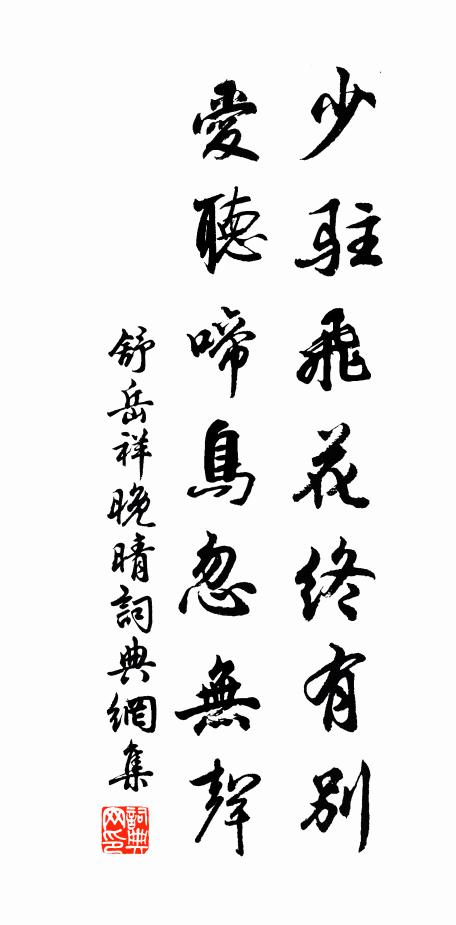 少駐飛花終有別
愛聽啼鳥忽無聲
舒岳祥晚晴詞典網集
詞典网印